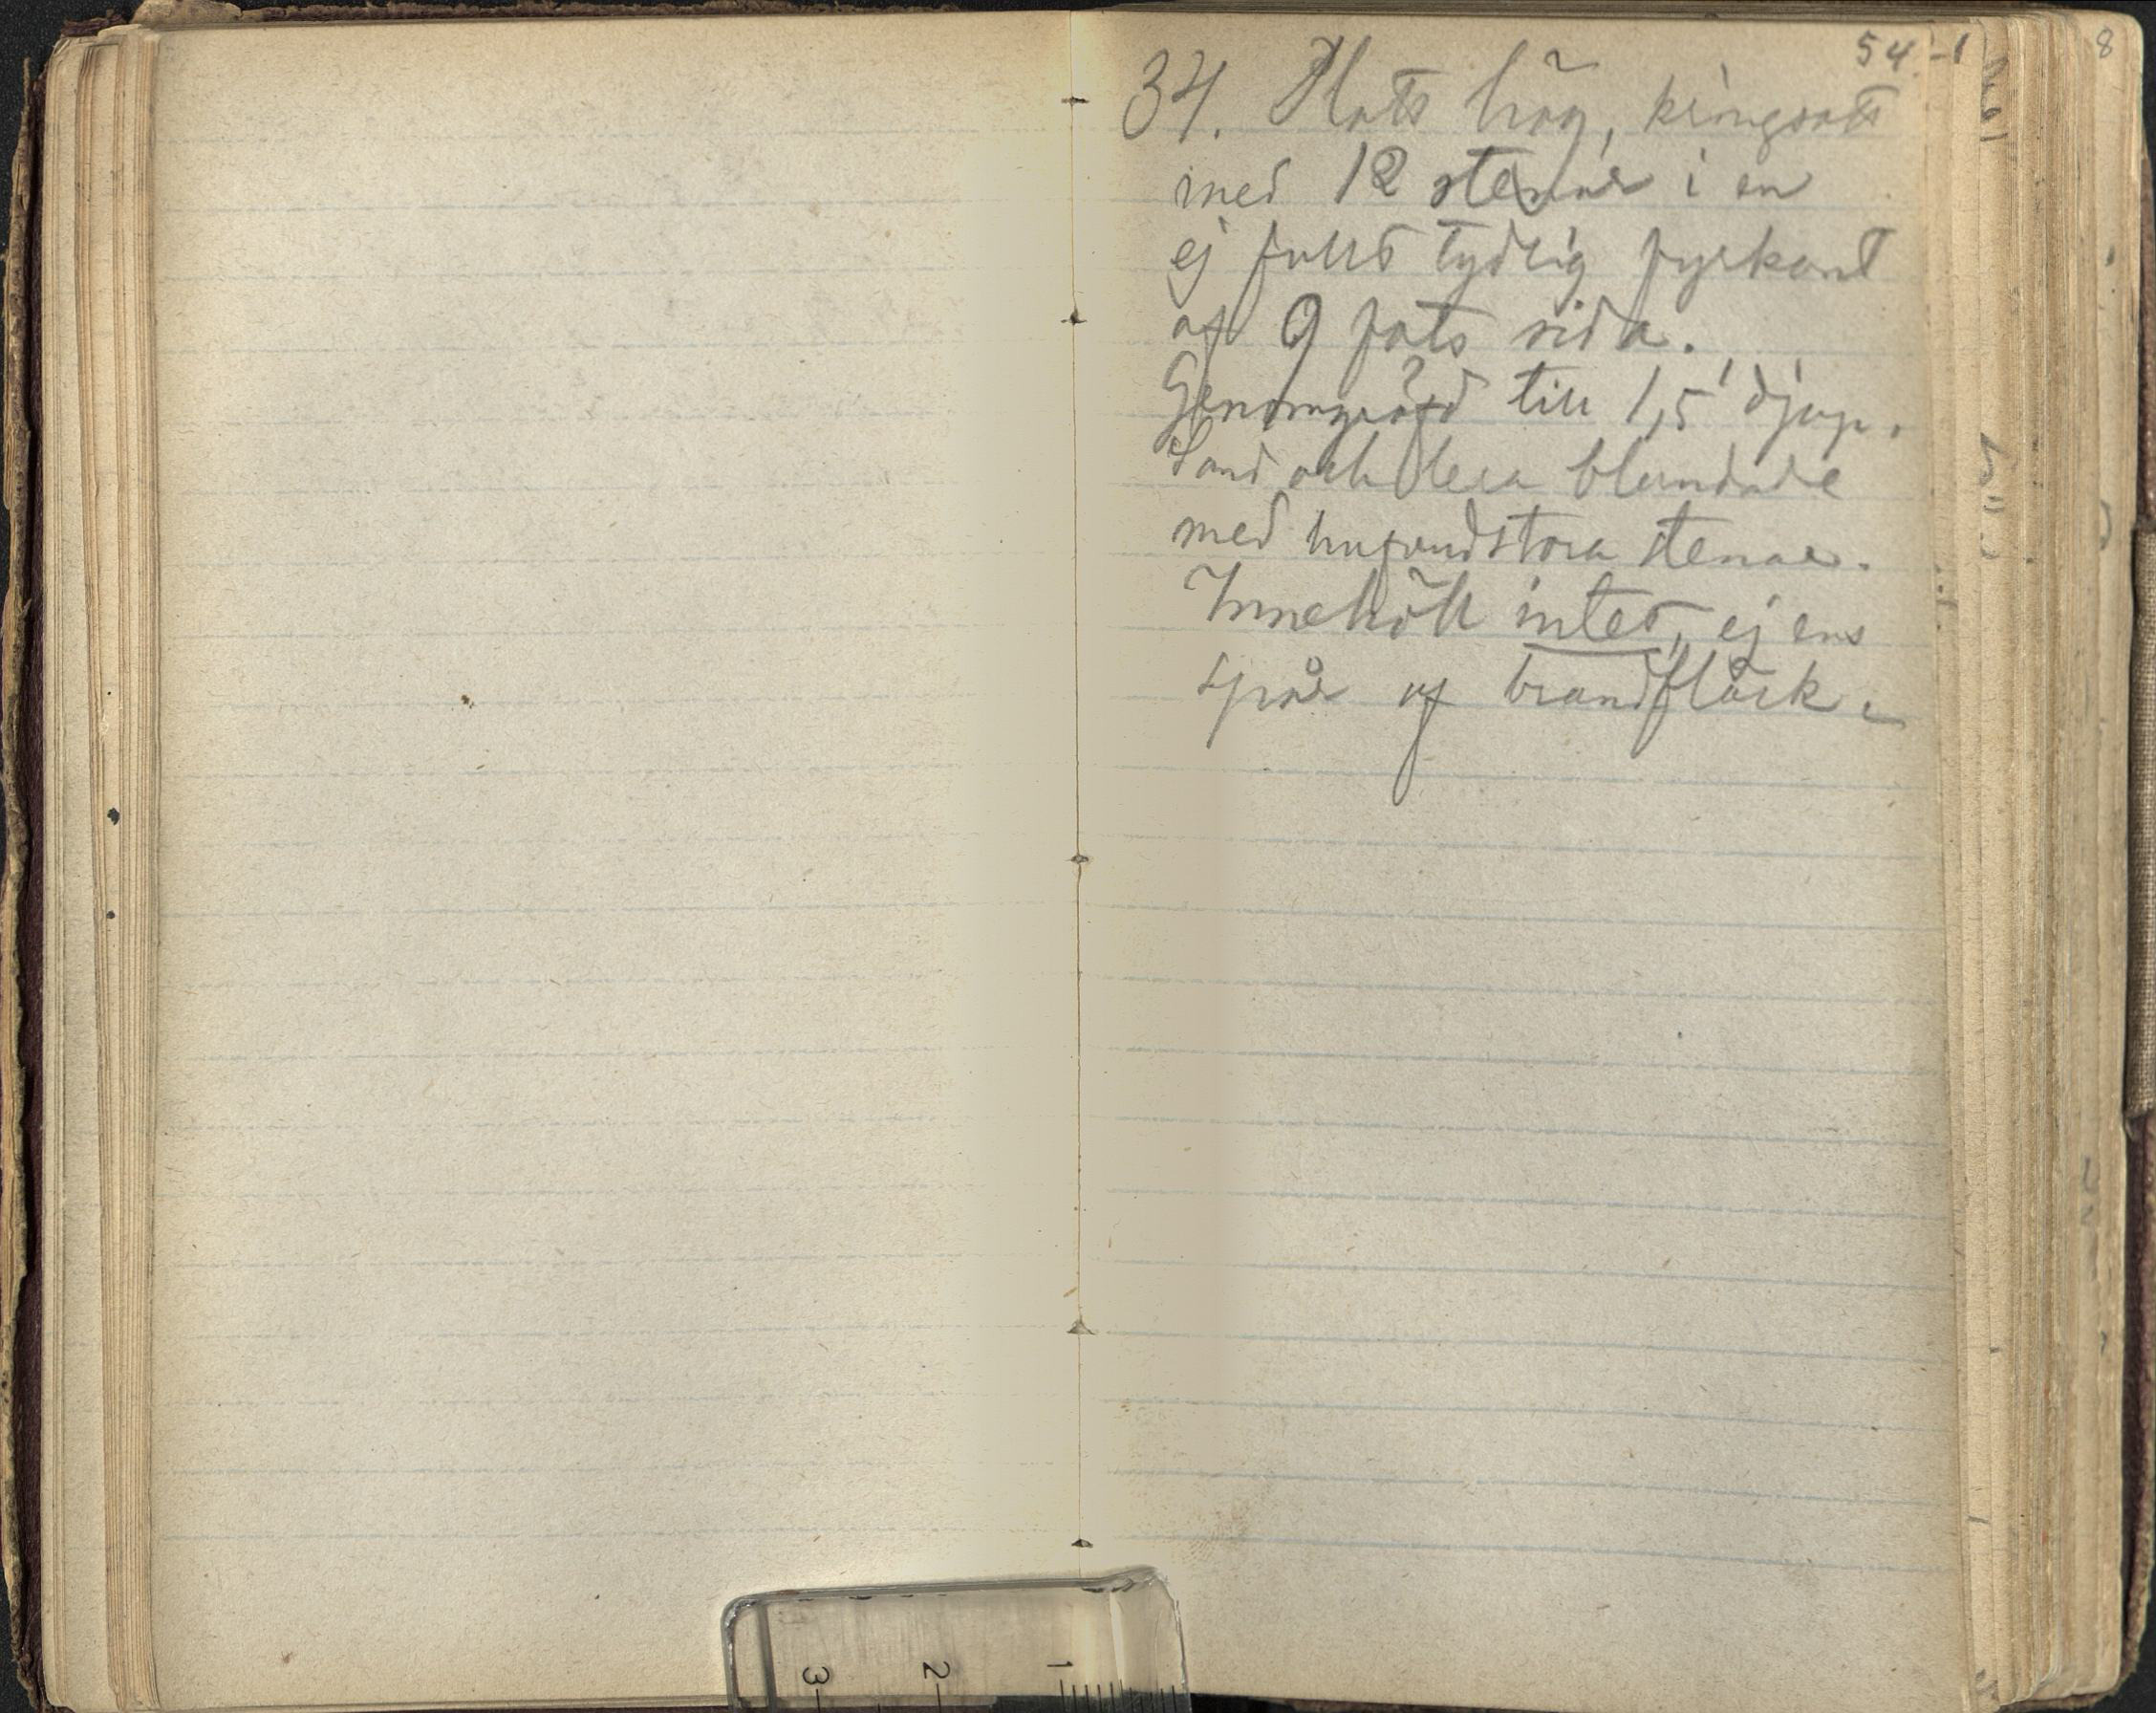 54.
34. Platt hög, kringsatt
med 12 stenar i en
ej fullt tydlig fyrkant
af 9 fots sida.
Genomgräfd till 1,5' djup.
Sand och lera blandade
med hufvudstora stenar.
Innehöll intet, ej ens
spår af brandfläck.
8
3 2 1